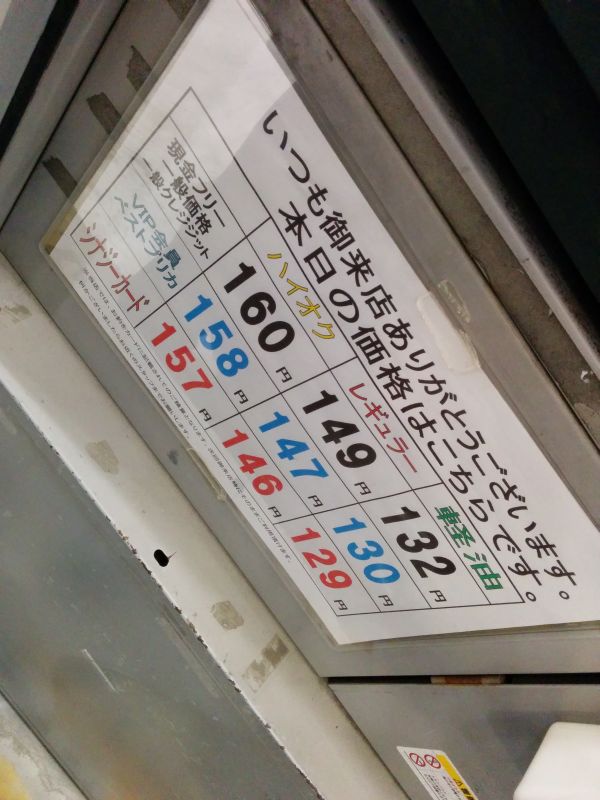 いつも御来店ありがとうございます。
本日の価格はこちらです。
ハイオク レギュラー 軽油
現金フリー
一般価格
一般クレジット
160円 149円 132円
VIP会員
ベストプリカ
158円 147円 130円
シナジーカード
157円 146円 129円